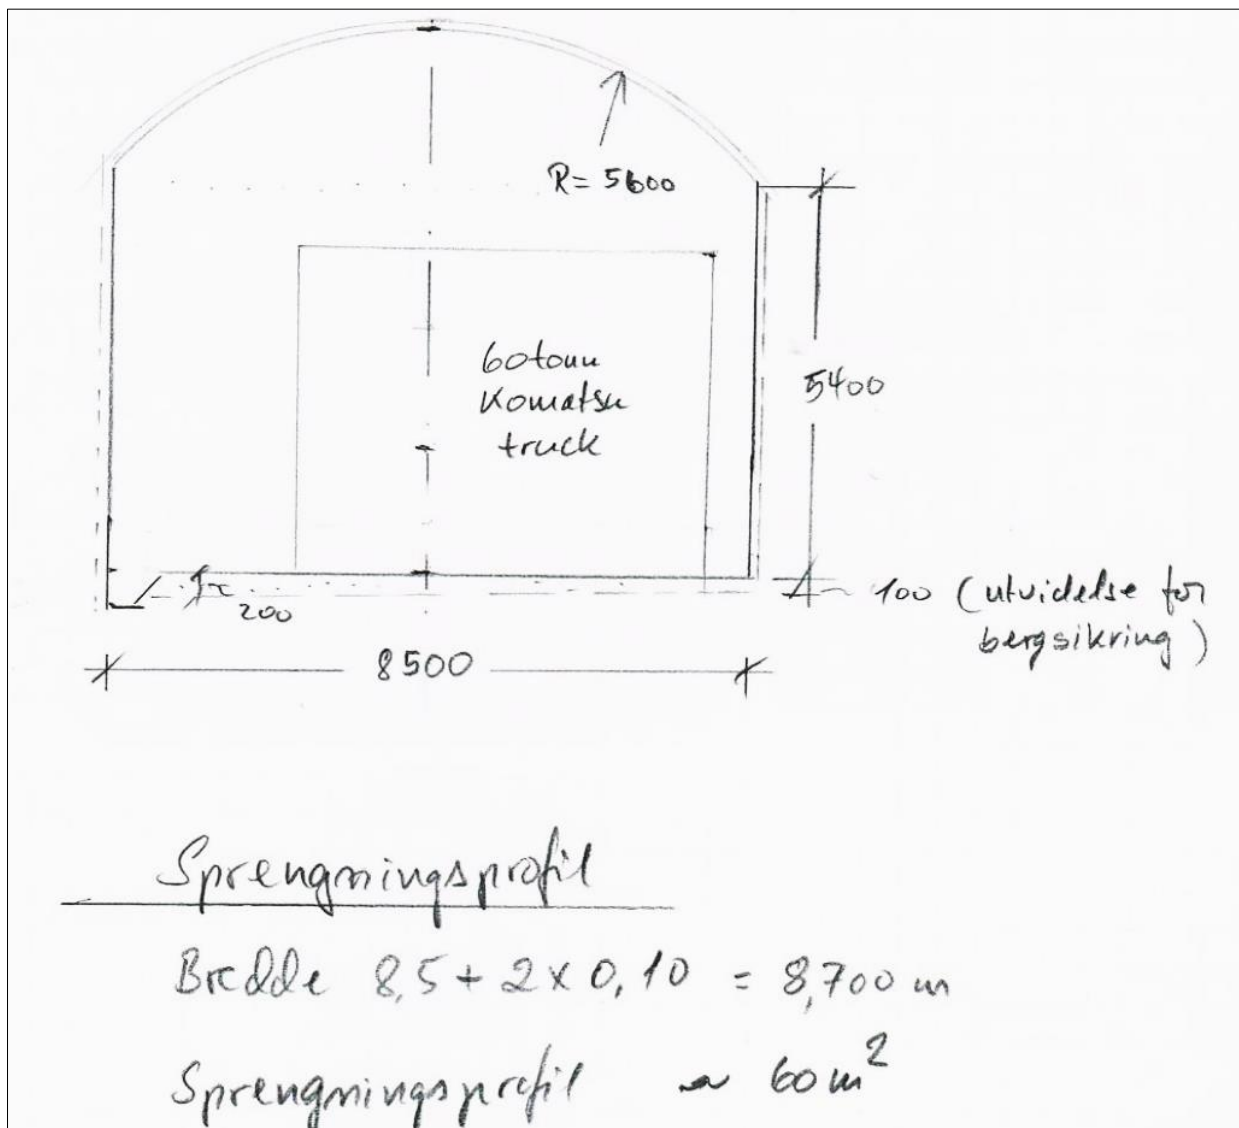 R = 5600
60 tonn
Komatsu
truck
5400
200
100 (utvidelse for
bergsikring)
8500
Sprengningsprofil
Bredde 8,5 + 2 x 0,10 = 8,700 m
Sprengningsprofil ~ 60 m²